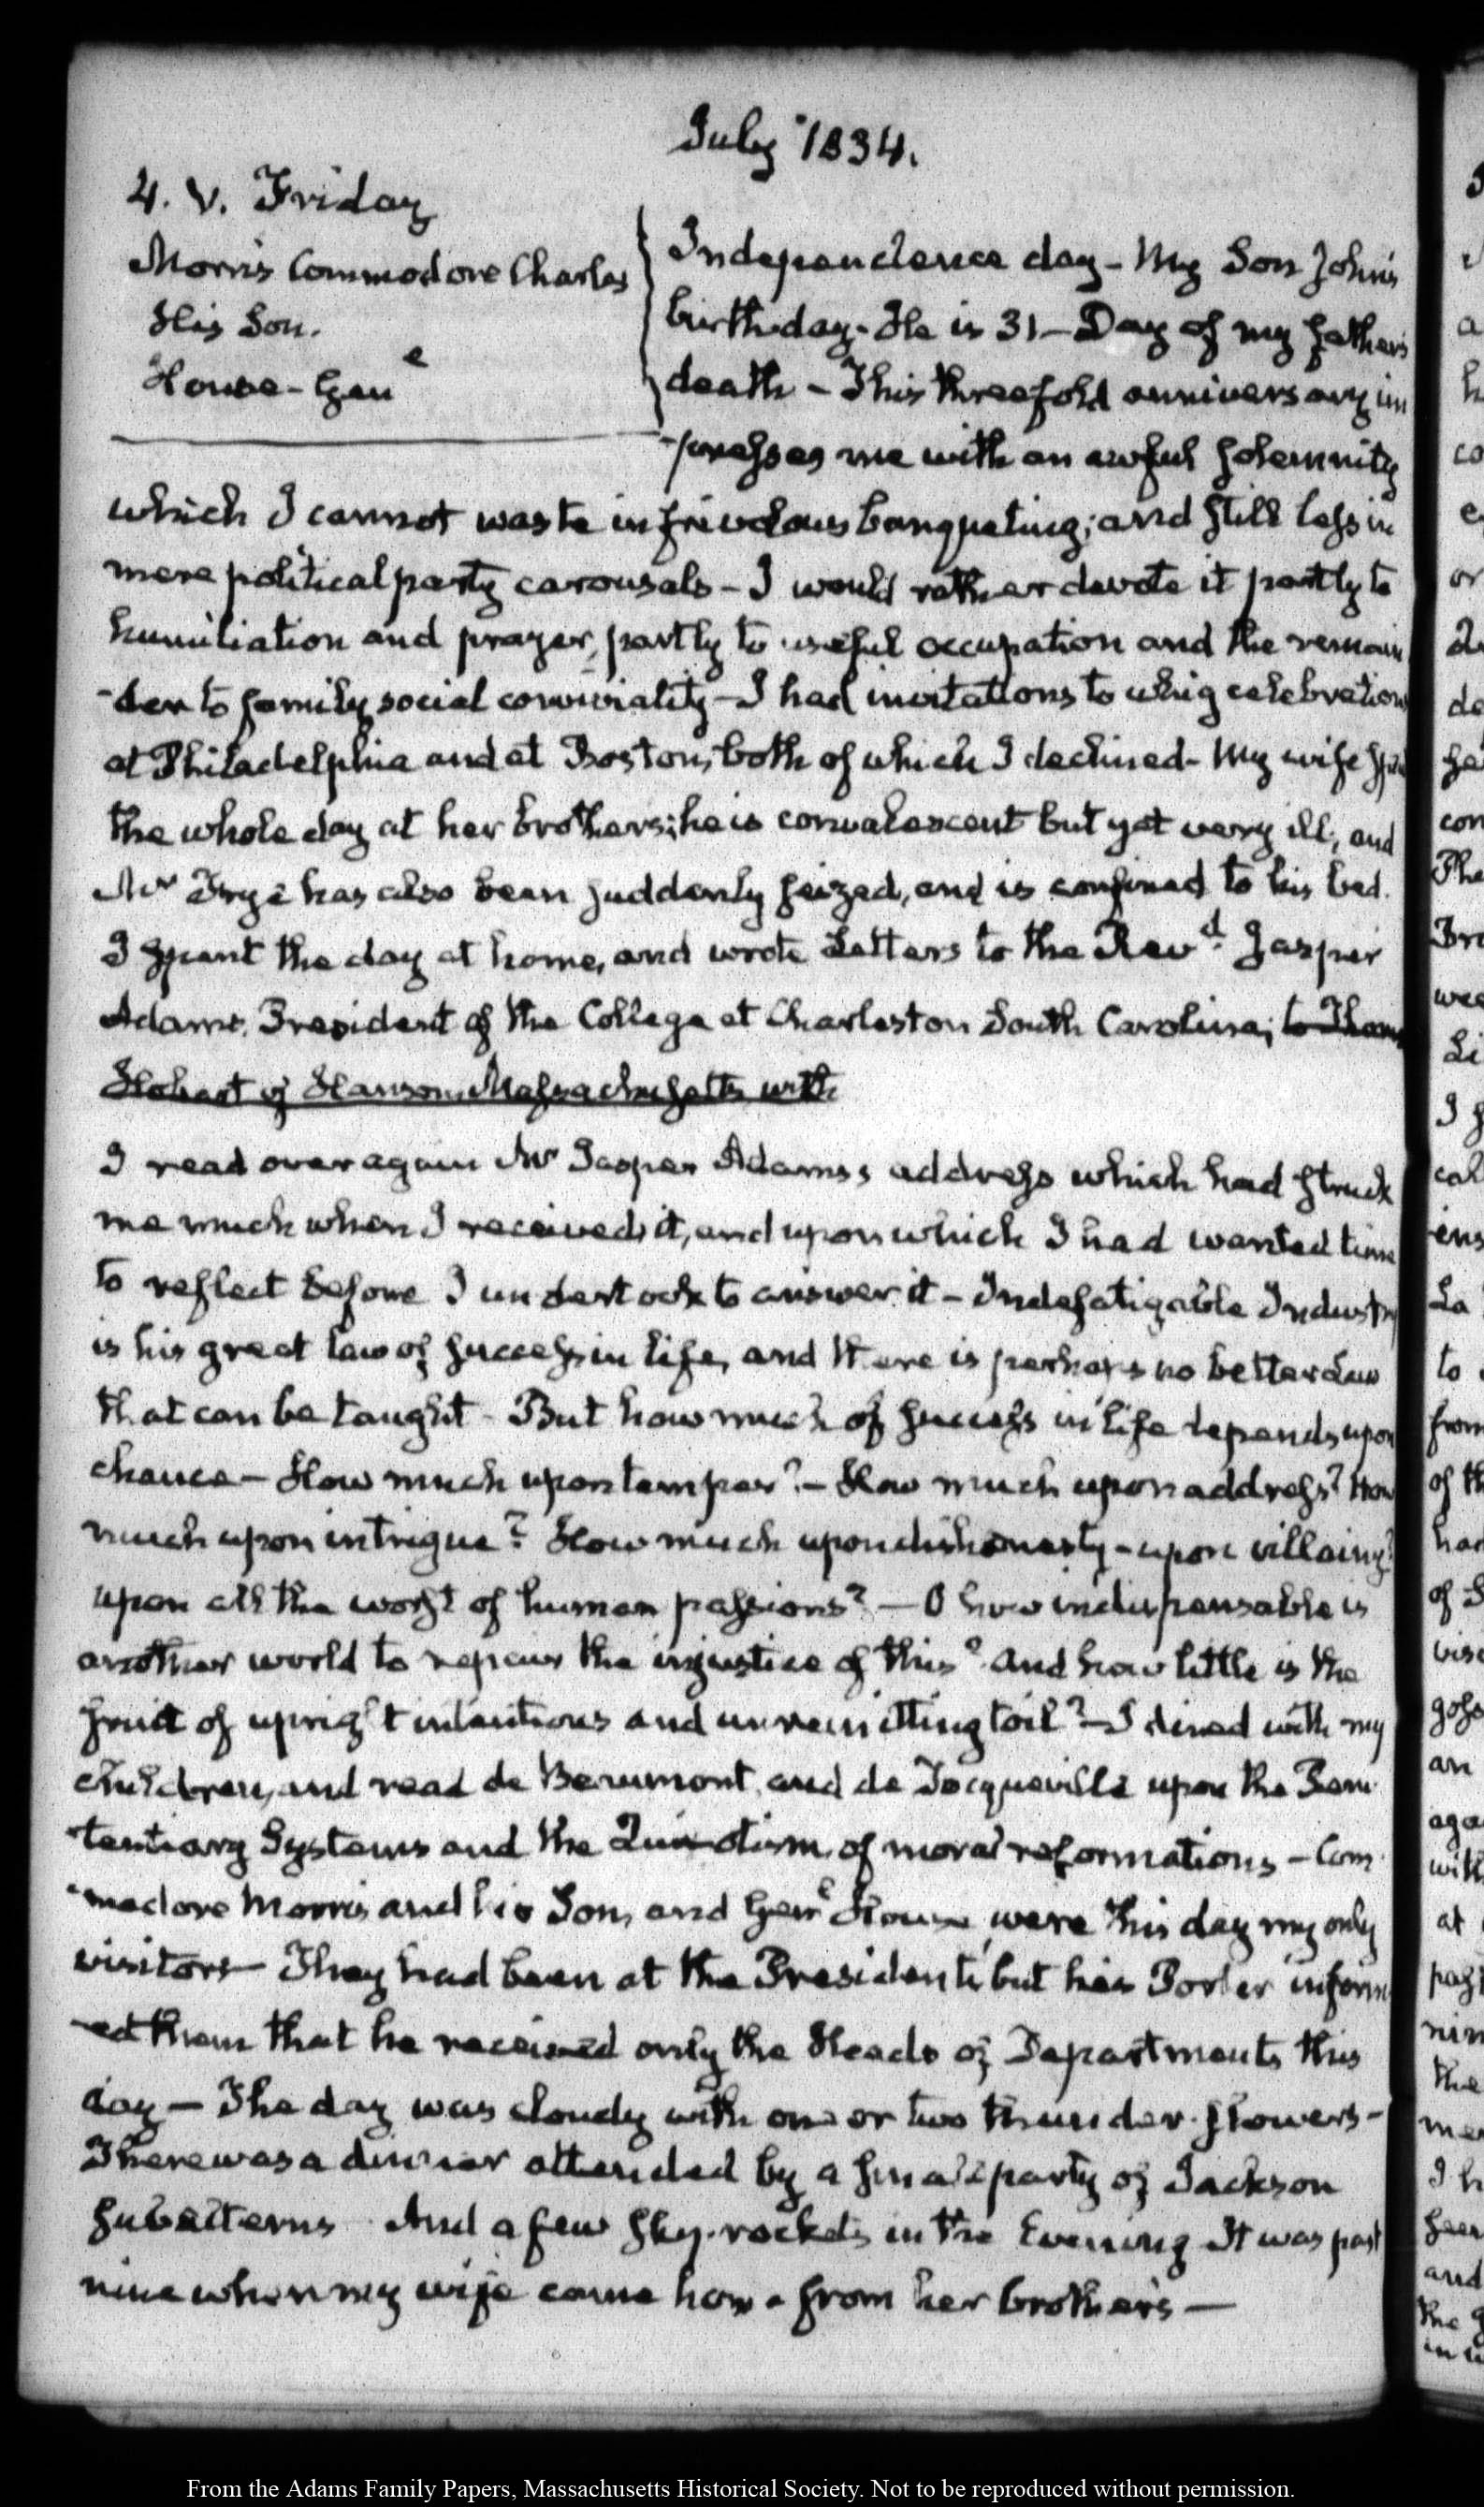 July 1834.
4. V. Friday
Morris Commodore Charles
His Son.
House - Geo e
Independence day - My Son John's
birth-day. He is 31 - Day of my father's
death - This threefold anniversary im
-presses me with an awful solemnity
which I cannot waste in frivolous banqueting; and still less in
mere political party carousals - I would rather devote it partly to
humiliation and prayer, partly to useful occupation and the remain
-der to family social conviviality - I had invitations to whig celebrations
at Philadelphia and at Boston, both of which I declined - My wife spent
the whole day at her brothers; he is convalescent but yet very ill, and
Mr Frye has also been suddenly seized, and is confined to his bed.
I spent the day at home, and wrote Letters to the Revd. Jasper
Adams. President of the College at Charleston South Carolina; to Thomas
Hobart of Hanson, Massachusetts with
I read over again Mr Jasper Adams's address which had struck
me much when I received it, and upon which I had wanted time
to reflect before I undertook to answer it - Indefatigable Industry
is his great law of success in life, and there is perhaps no better Law
that can be taught - But how much of success in life depends upon
chance - How much upon temper? - How much upon address? How
much upon intrigue? How much upon dishonesty - upon villainy?
upon all the worst of human passions? - O how indispensable is
another world to repair the injustice of this? And how little is the
fruit of upright intentions and unremitting toil? - I dined with my
children, and read de Beaumont and de Tocqueville upon the Peni
-tentiary Systems and the Quixotism of moral reformations - Com
-modore Morris and his Son, and Geo e House were this day my only
visitors - They had been at the President's but his Porter inform
-ed them that he received only the Heads of Departments this
day - The day was cloudy with one or two thunder-showers -
There was a dinner attended by a small party of Jackson
subalterns And a few sky-rockets in the Evening It was past
nine when my wife came home from her brother's -
From the Adams Family Papers, Massachusetts Historical Society. Not to be reproduced without permission.